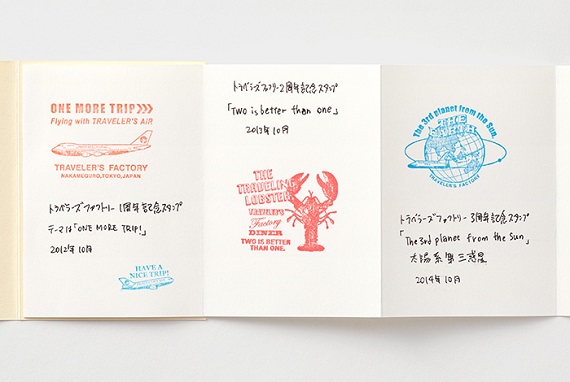 ONE MORE TRIP>>>
Flying with TRAVELER'S AIR
TRAVELER'S FACTORY
NAKAMEGURO,TOKYO,JAPAN
トラベラーズファクトリー 1周年記念スタンプ
テーマは「ONE MORE TRIP!」
2012年10月
HAVE A
NICE TRIP!
トラベラーズファクトリー2周年記念スタンプ
「Two is better than one」
2013年10月
THE
TRAVELING
LOBSTER
TRAVELER'S
Factory
DINER
TWO IS BETTER
THAN ONE.
The 3rd planet from the Sun.
THE
NORTH
TRAVELER'S FACTORY
トラベラーズファクトリー 3周年記念スタンプ
「The 3rd planet from the Sun」
太陽系第三惑星
2014年10月